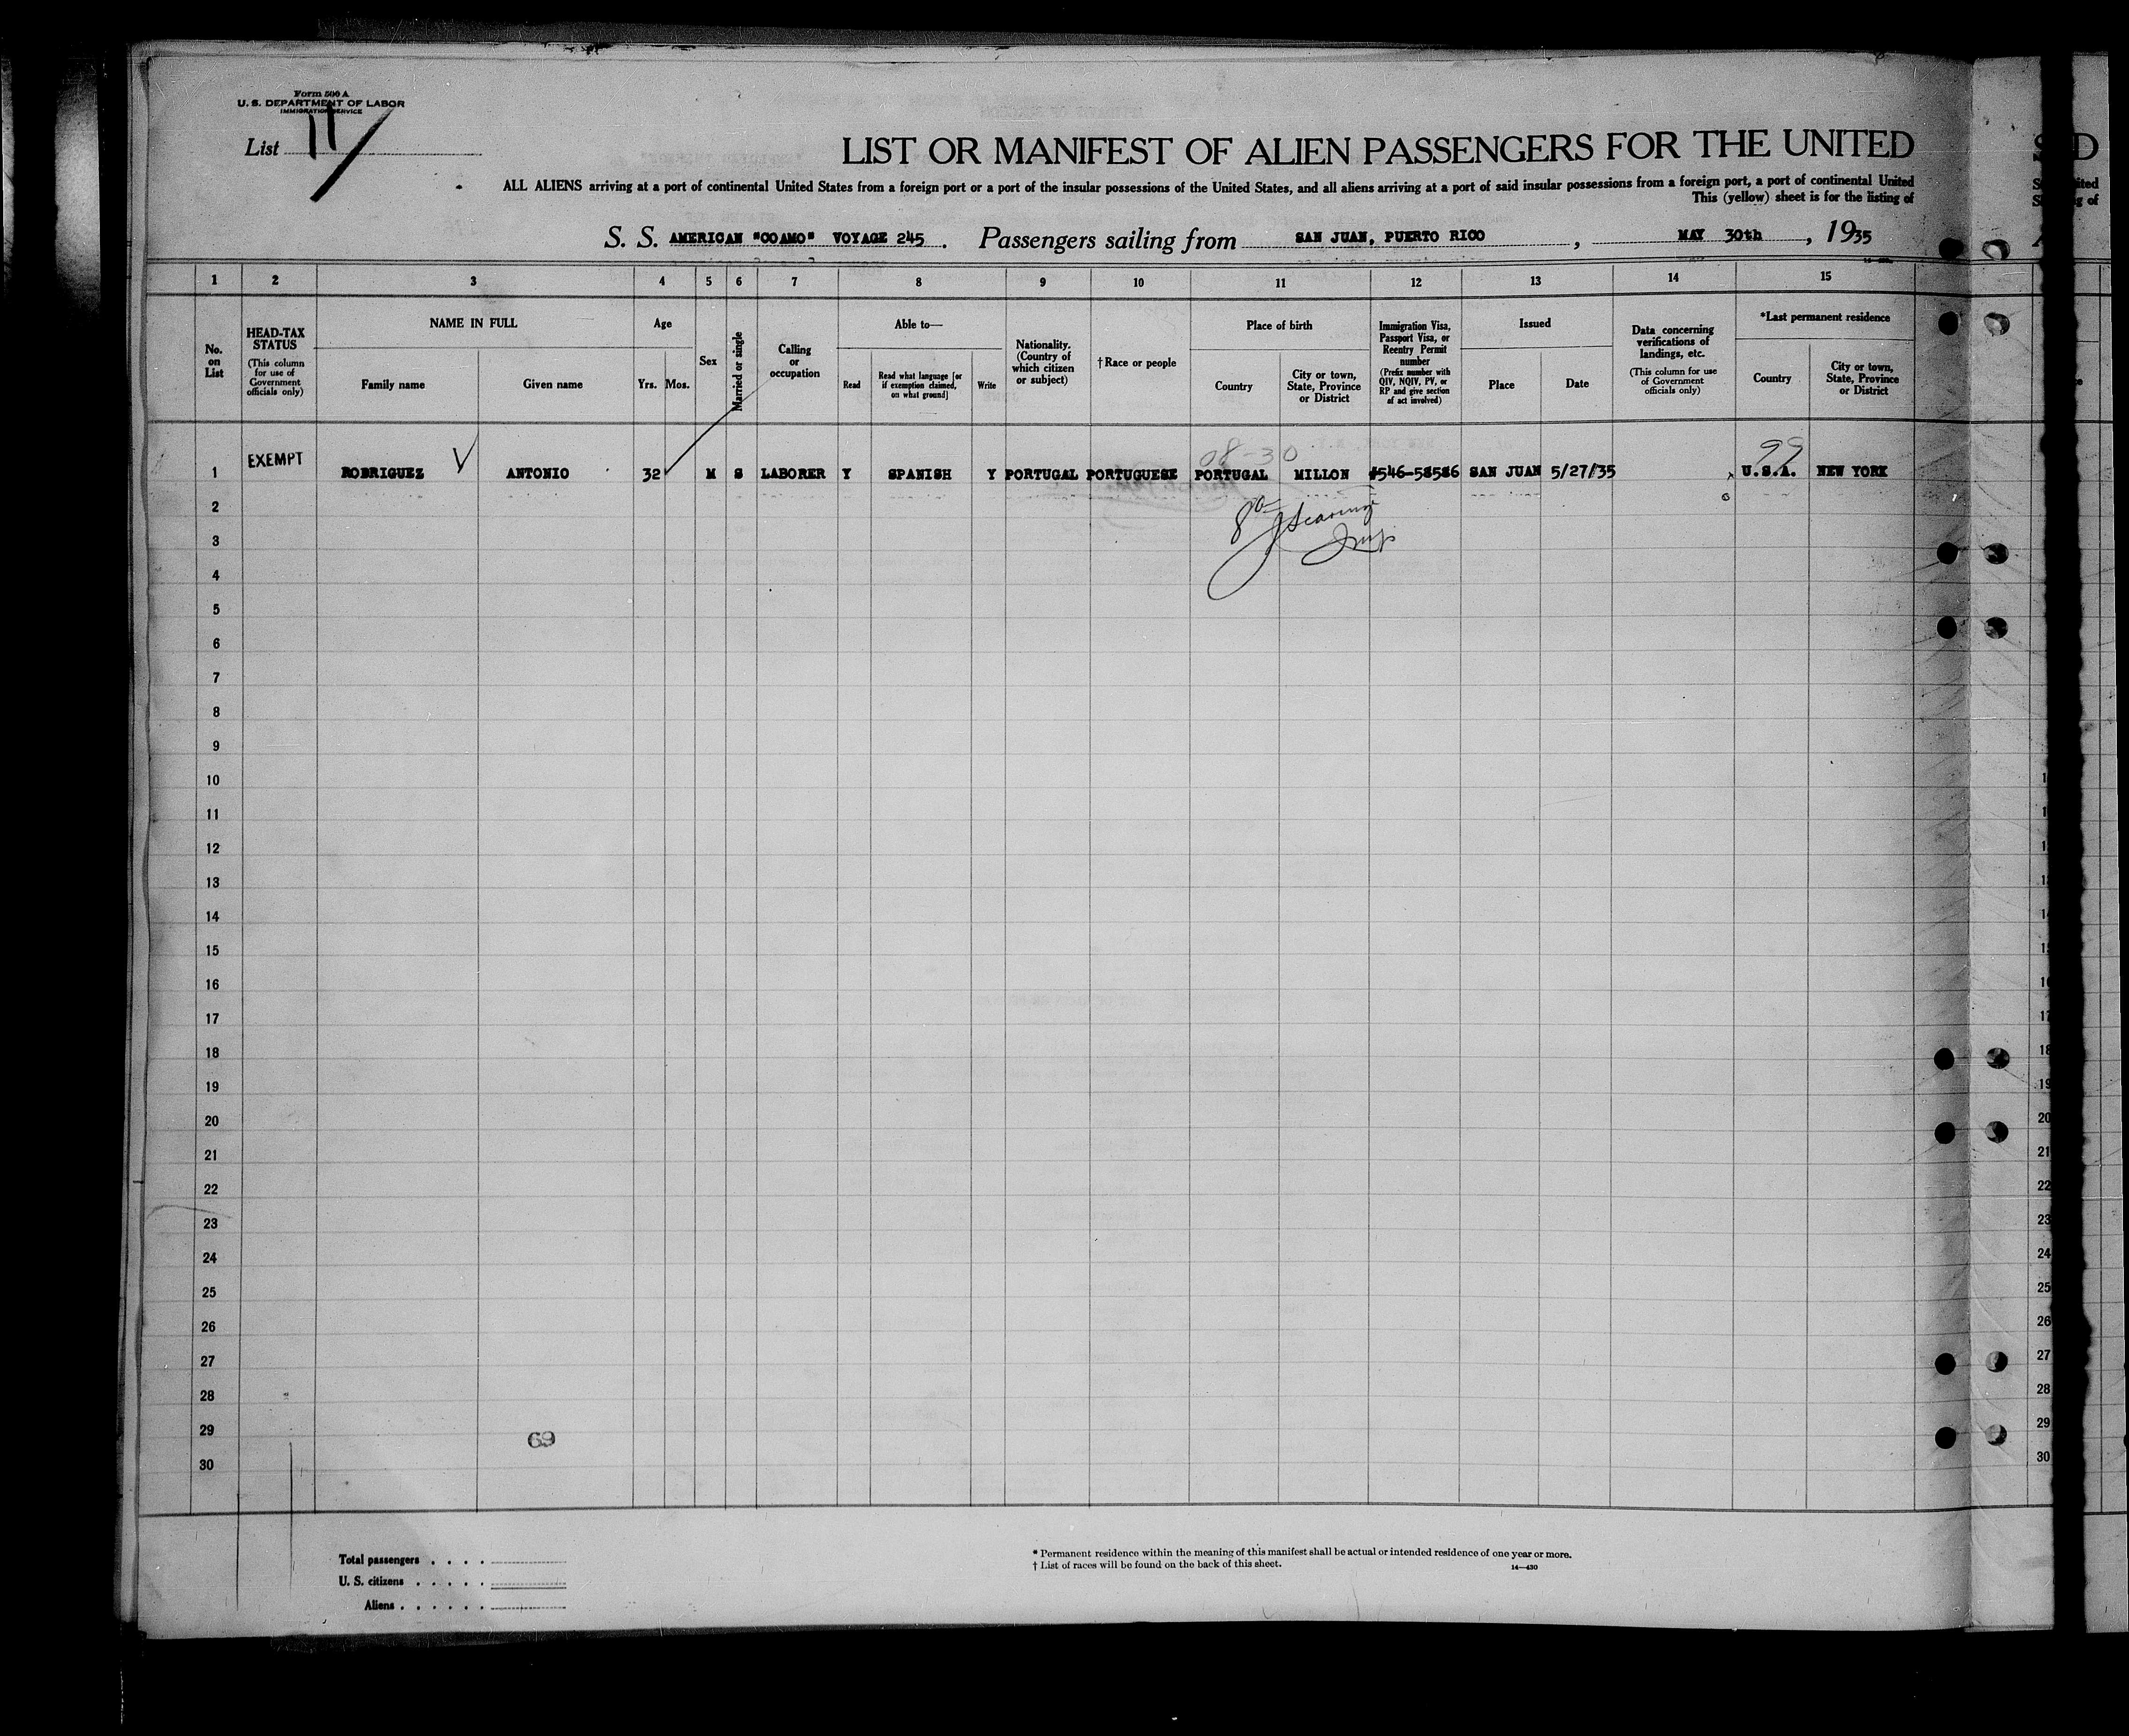 Form 500 A
U. S. DEPARTMENT OF LABOR
IMMIGRATION SERVICE
List 11
LIST OR MANIFEST OF ALIEN PASSENGERS FOR THE UNITED
ALL ALIENS arriving at a port of continental United States from a foreign port or a port of the insular possessions of the United States, and all aliens arriving at a port of said insular possessions from a foreign port, a port of continental United
This (yellow) sheet is for the listing of
S. S. AMERICAN "COAMO" VOYAGE 245 . Passengers sailing from SAN JUAN, PUERTO RICO , MAY 30th , 1935
1 2 3 4 5 6 7 8 9 10 11 12 13 14 15
No. on List
HEAD-TAX STATUS (This column for use of Government officials only)
NAME IN FULL
Family name
Given name
Age
Yrs. Mos.
Sex
Married or single
Calling or occupation
Able to—
Read
Read what language [or if exemption claimed, on what ground]
Write
Nationality. (Country of which citizen or subject)
†Race or people
Place of birth
Country
City or town, State, Province or District
Immigration Visa, Passport Visa, or Reentry Permit number (Prefix number with QIV, NQIV, PV, or RP and give section of act involved)
Issued
Place
Date
Data concerning verifications of landings, etc. (This column for use of Government officials only)
*Last permanent residence
Country
City or town, State, Province or District
08-30 99
1 EXEMPT RODRIGUEZ V ANTONIO 32 M S LABORER Y SPANISH Y PORTUGAL PORTUGUESE PORTUGAL MILLON #546-58586 SAN JUAN 5/27/35 U.S.A. NEW YORK
2
3
4
5
6
7
8
9
10
11
12
13
14
15
16
17
18
19
20
21
22
23
24
25
26
27
28
29
69
30
Total passengers . . . .
U. S. citizens . . . . .
Aliens . . . . . .
* Permanent residence within the meaning of this manifest shall be actual or intended residence of one year or more.
† List of races will be found on the back of this sheet. 14—430